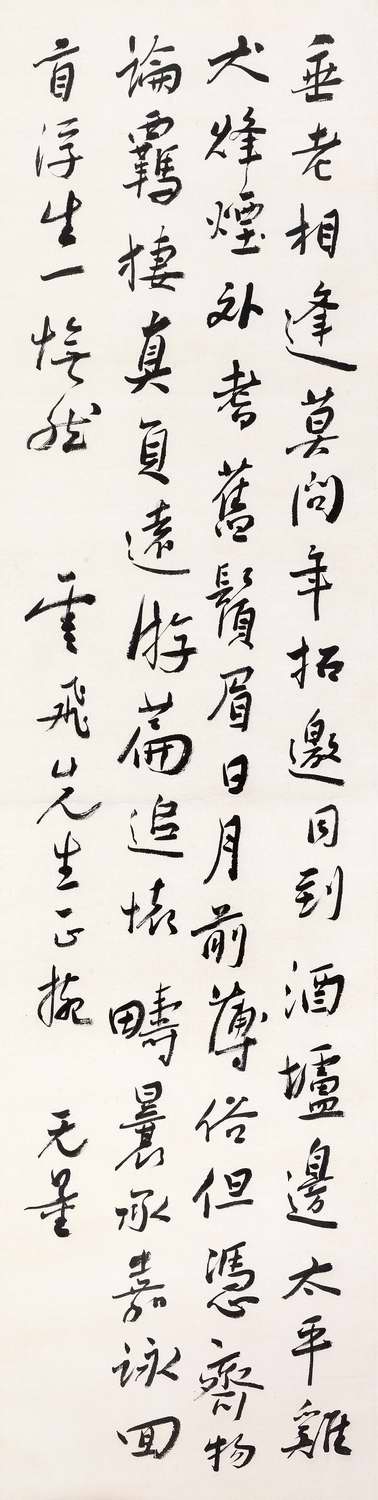 垂老相逢莫問年招邀同到酒壚邊太平雞
犬烽煙外耆舊鬚眉日月前薄俗但憑齊物
論羈棲真負遠游篇追懷疇曩承嘉詠回
首浮生一憮然 雲飛先生正挽 无量